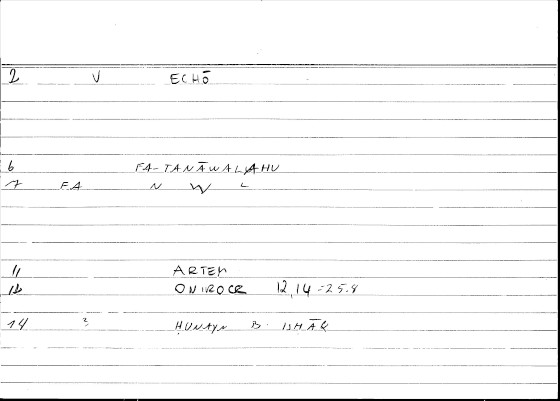 2 V ECHŌ
6 FA-TANĀWALAHU
7 FA N W L
11 ARTEM
12 ONIROCR 12,14 = 25.8
14 ? ḤUNAYN B. ISḤĀQ